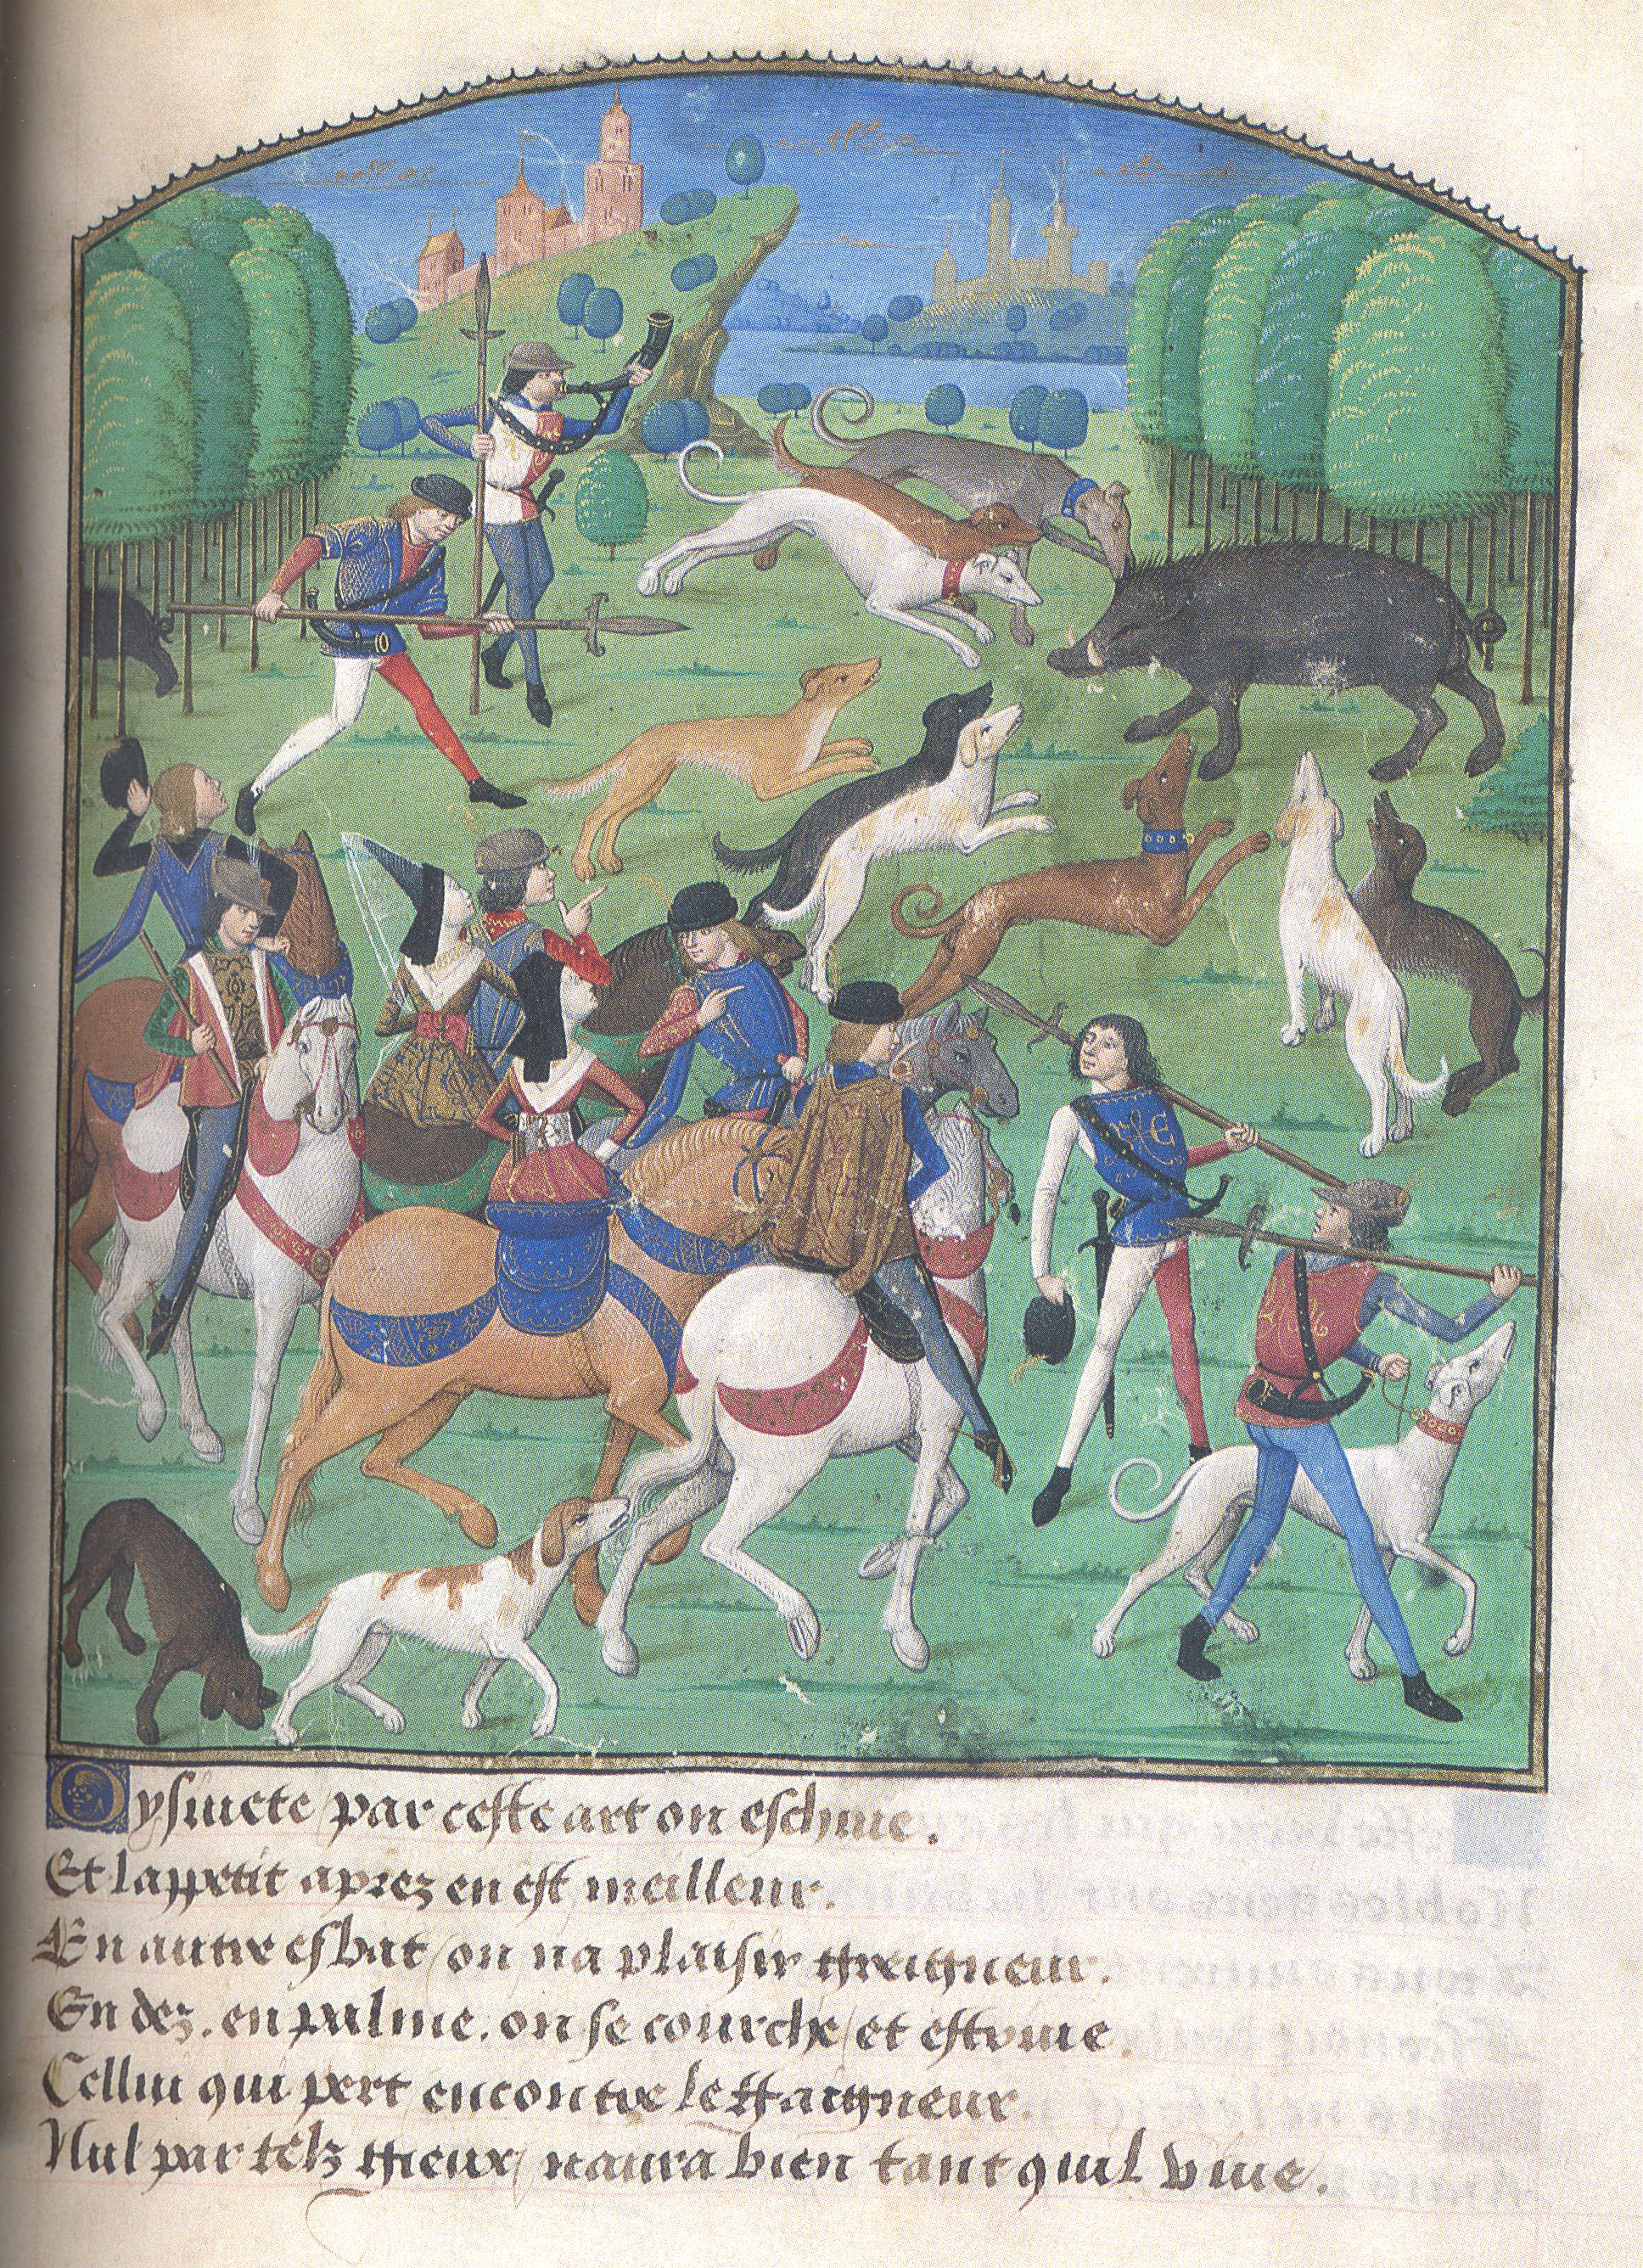 Oysivete par ceste art on eschive.
Et lappetit aprez en est meilleur.
En autre esbat / on na plaisir greigneur.
En dez. en palme. on se courche / et estrive.
Cellui qui pert encontre le gaigneur.
Nul par telz gieux / naura bien tant quil vive.